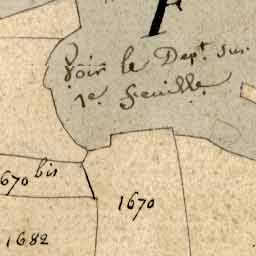 F
Voir le Dept sur
1e feuille
1670 bis
1670
1682